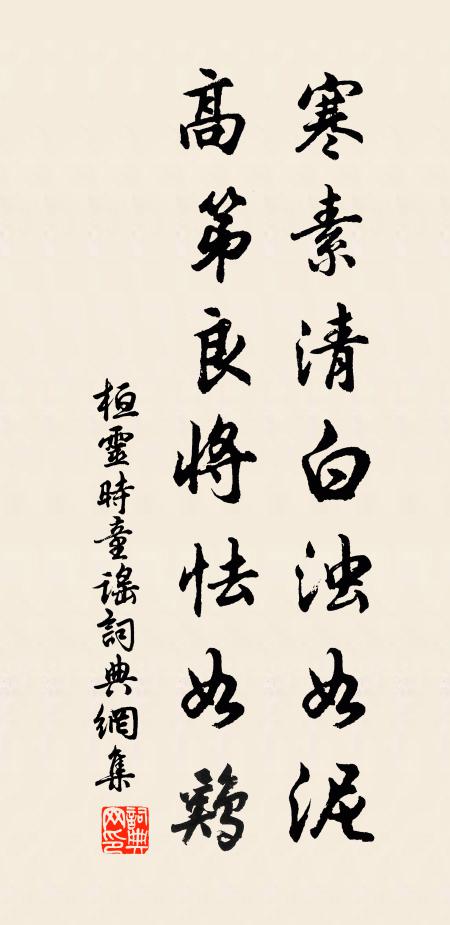 寒素清白浊如泥
高第良将怯如鸡
桓靈時童謠詞典網集
詞典网印